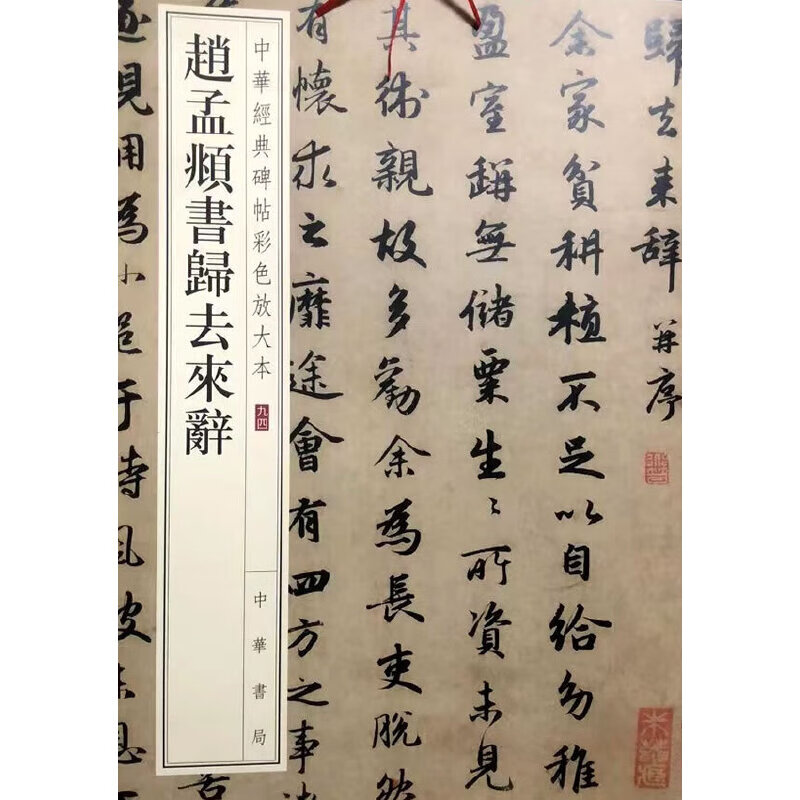 趙孟頫書歸去來辭
中華經典碑帖彩色放大本
九四
中華書局
歸去来辞并序
余家貧耕植不足以自給幼稚
盈室缾無儲粟生〻所資未見
其術親故多勸余為長吏脱然
有懷求之靡途會有四方之事
遂見用為小邑于時風波未息